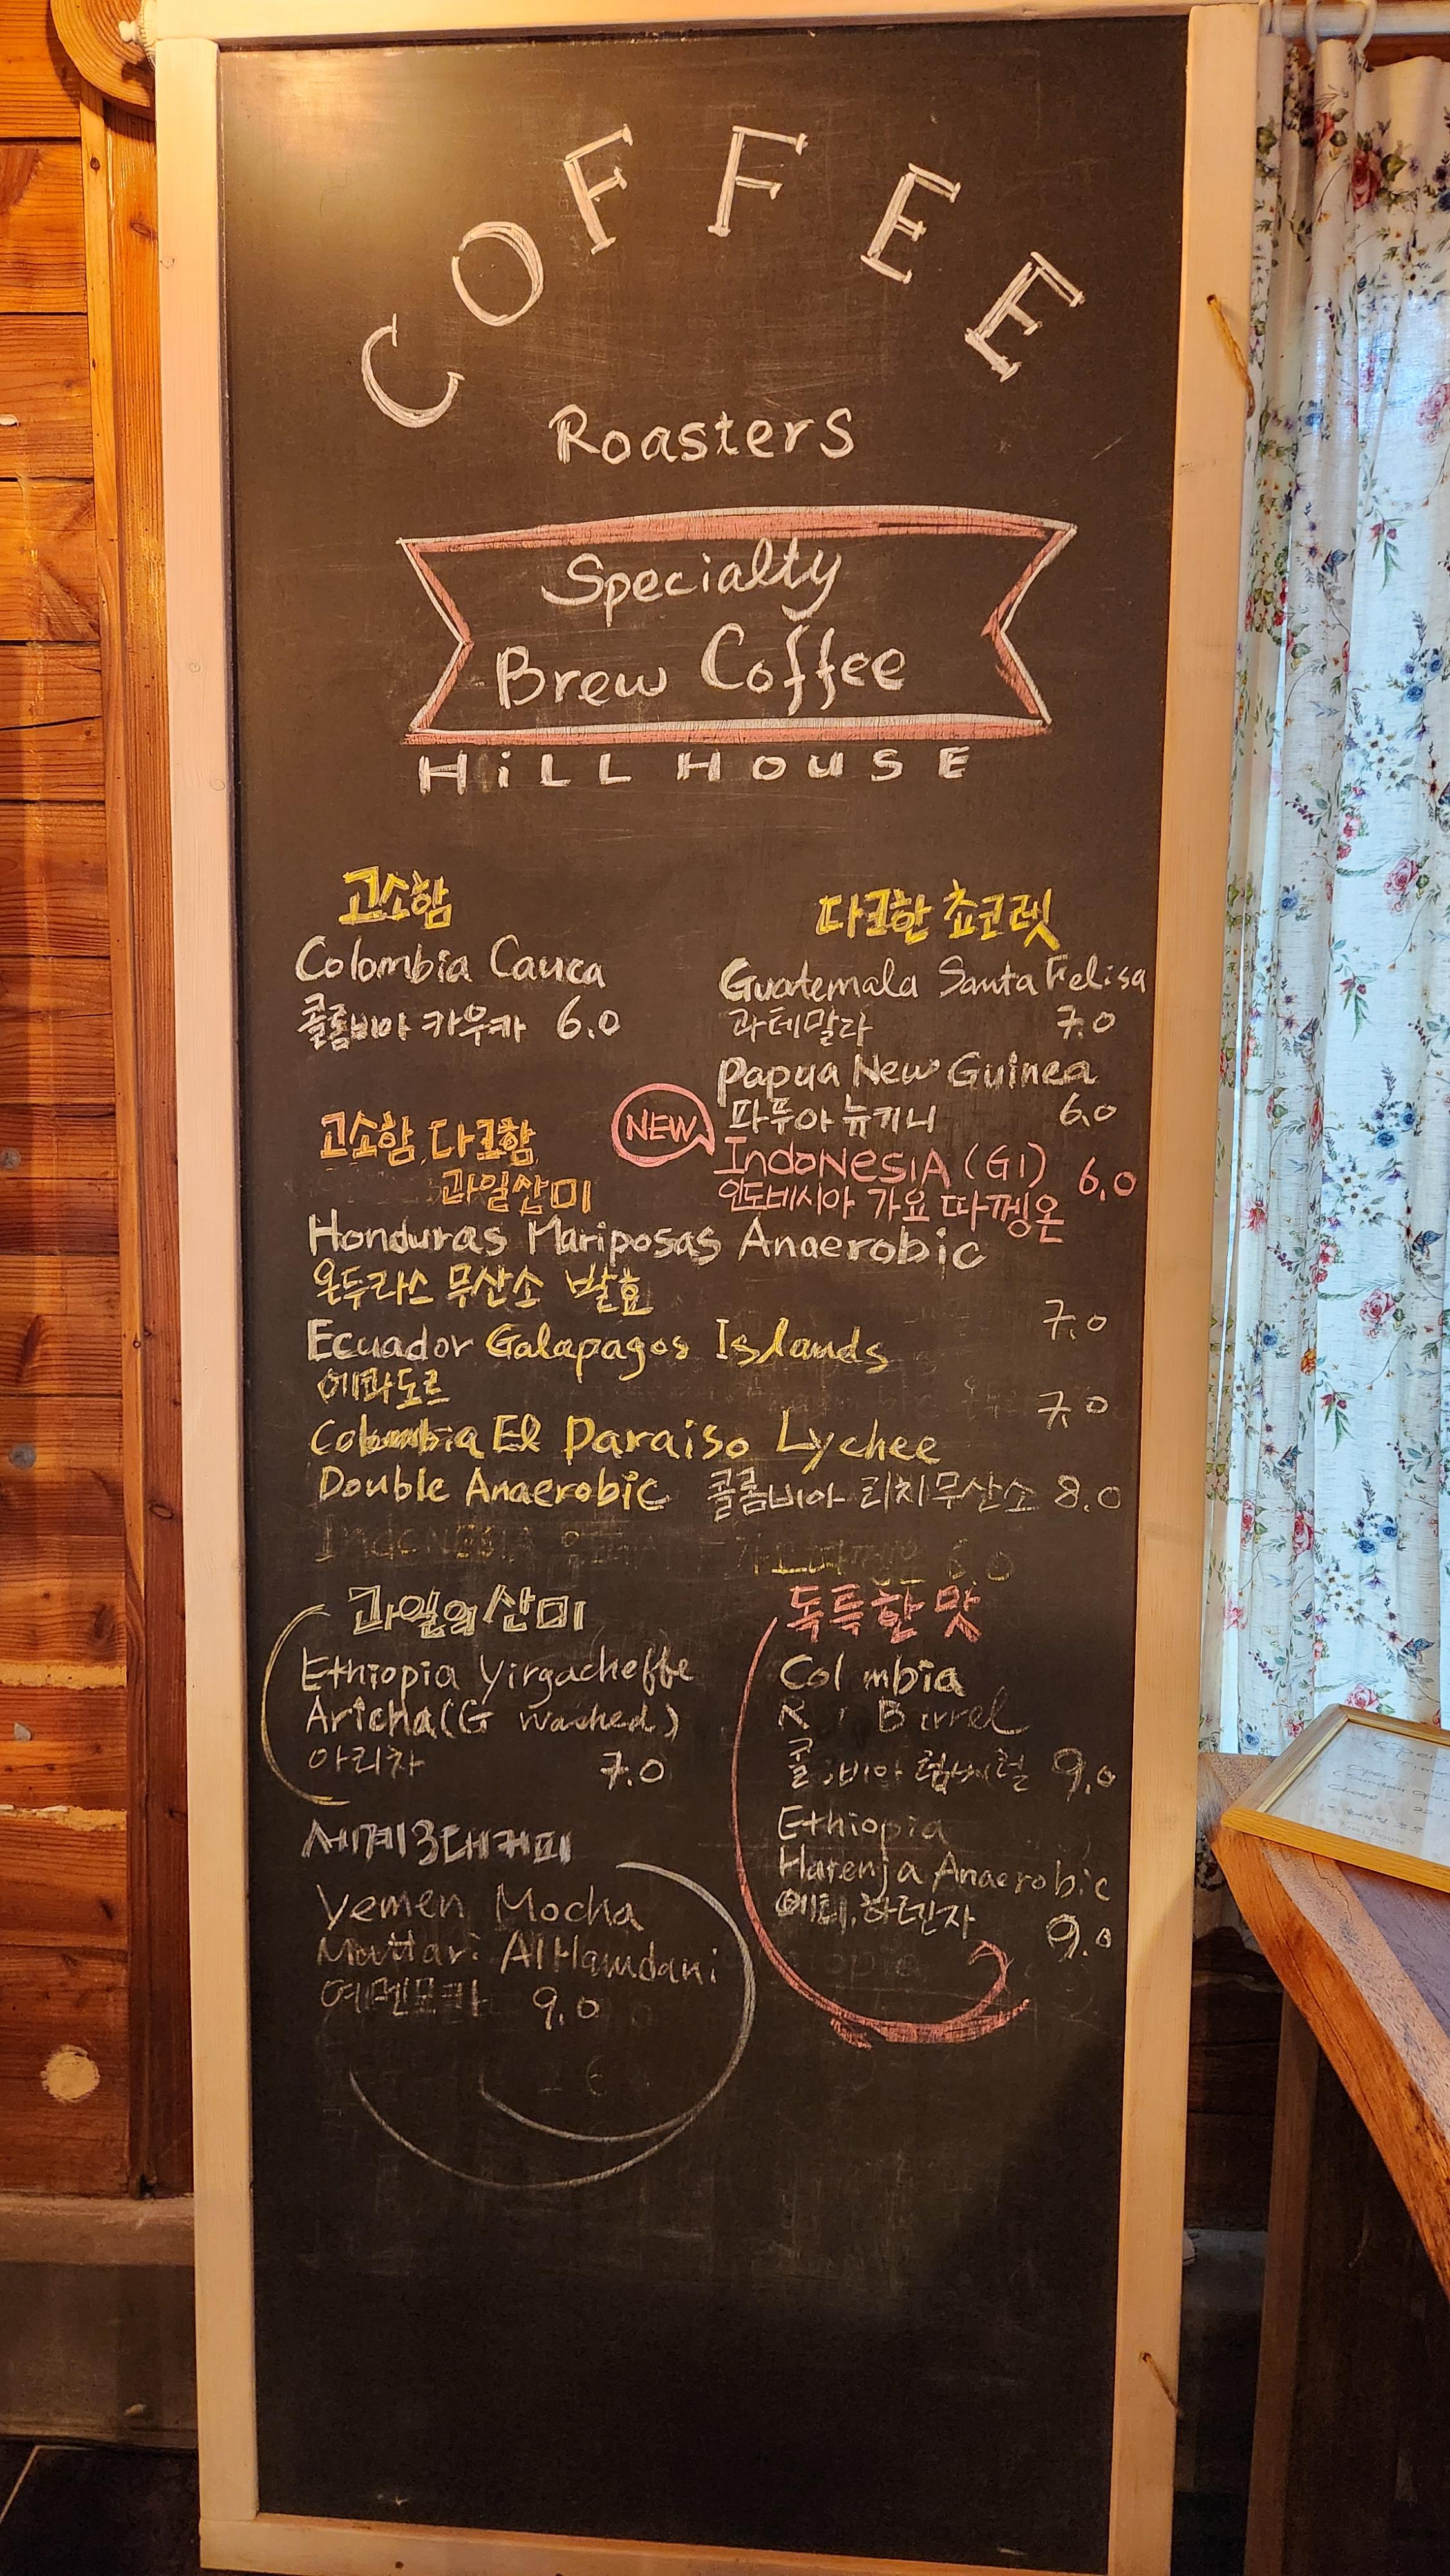 COFFEE
Roasters
Specialty
Brew Coffee
HiLL HOUSE
고소함
Colombia Cauca
콜롬비아 카우카 6.0
다크한 쵸코렛
Guatemala Santa Felisa
과테말라 7.0
Papua New Guinea
파푸아 뉴기니 6.0
NEW
INdoNESIA (G1) 6.0
인도네시아 가요 따껭온
고소함, 다크함
과일산미
Honduras Mariposas Anaerobic
온두라스 무산소 발효 7.0
Ecuador Galapagos Islands
에콰도르 7.0
Colombia El Paraiso Lychee
Double Anaerobic 콜롬비아 리치무산소 8.0
과일의 산미
Ethiopia Yirgacheffe
Aricha (G washed)
아리차 7.0
세계3대커피
Yemen Mocha
Mattari AlHamdani
예멘모카 9.0
독특한 맛
Col mbia
R Barrel
콜 비아 럼버럴 9.0
Ethiopia
Harenja Anaerobic
에티. 하렌자 9.0